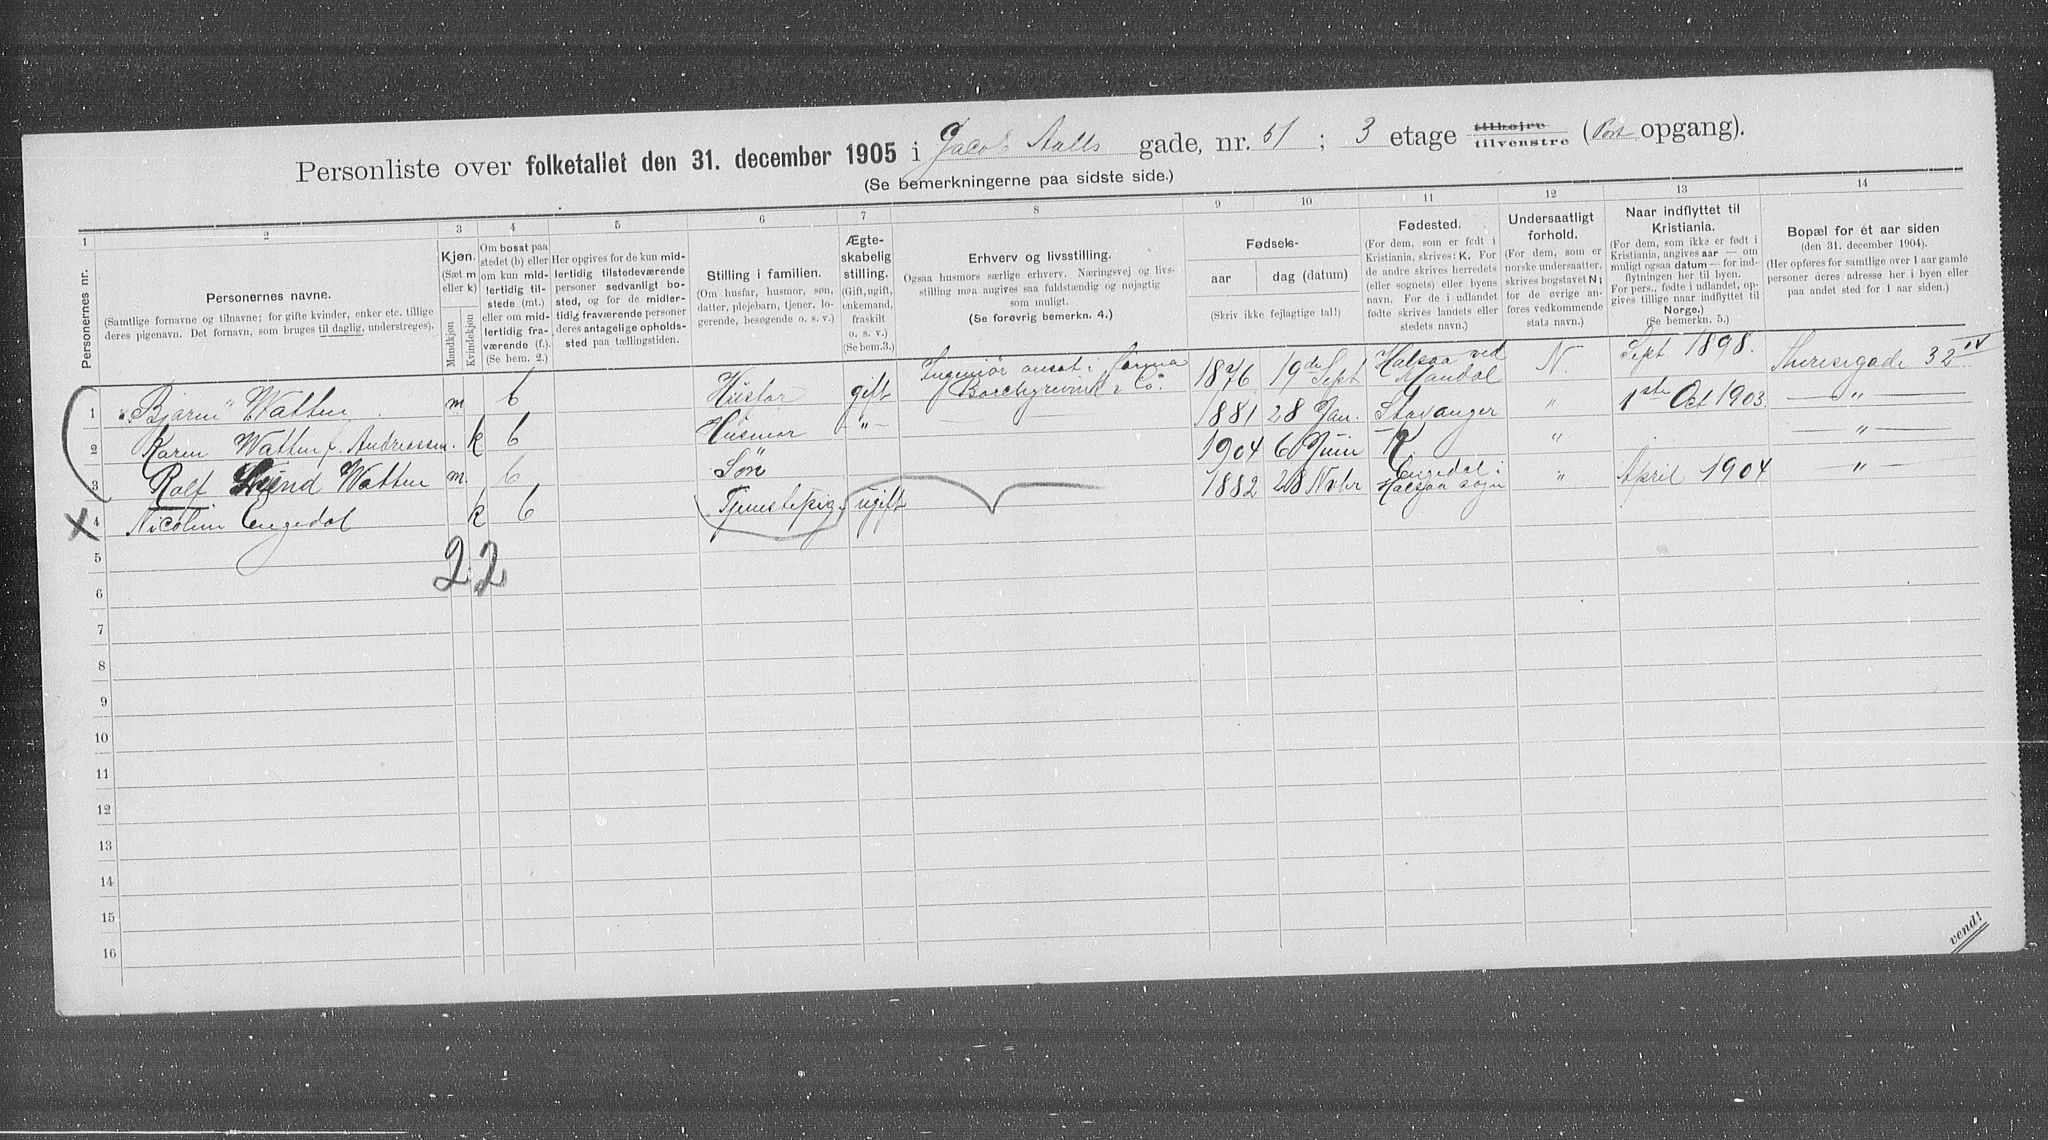 Personliste over folketallet den 31. december 1905 i Jacob Aalls gade, nr. 51 ; 3 etage tilhøjre tilvenstre (Port opgang).
(Se bemerkningerne paa sidste side.)
1 2 3 4 5 6 7 8 9 10 11 12 13 14
Personernes nr.
Personernes navne.
(Samtlige fornavne og tilnavne; for gifte kvinder, enker etc. tillige
deres pigenavn. Det fornavn, som bruges til daglig, understreges).
Kjøn.
(Sæt m
eller k)
Mandkjøn
Kvindekjøn
Om bosat paa
stedet (b) eller
om kun mid-
lertidig tilste-
stede (mt.)
eller om mid-
lertidig fra-
værende (f.).
(Se bem. 2.)
Her opgives for de kun mid-
lertidig tilstedeværende
personer sedvanligt bo-
sted, og for de midler-
tidig fraværende personer
deres antagelige opholds-
sted paa tællingstiden.
Stilling i familien.
(Om husfar, husmor, søn,
datter, plejebarn, tjener, lo-
gerende, besøgende o. s. v.)
Ægte-
skabelig
stilling.
(Gift, ugift,
enkemand,
fraskilt
o. s. v.)
(Se bem.3.)
Erhverv og livsstilling.
Ogsaa husmors særlige erhverv. Næringsvej og livs-
stilling maa angives saa fuldstændig og nøjagtig
som muligt.
(Se forøvrig bemerkn. 4.)
Fødsels-
aar
dag (datum)
(Skriv ikke fejlagtige tal!)
Fødested.
(For dem, som er født i
Kristiania, skrives: K. For
de andre skrives herredets
(eller sognets) eller byens
navn. For de i udlandet
fødte skrives landets eller
stedets navn.)
Undersaatligt
forhold.
(For dem, som er
norske undersaatter,
skrives bogstavet N;
for de øvrige an-
føres vedkommende
stats navn.)
Naar indflyttet til
Kristiania.
(For dem, som ikke er født i
Kristiania, angives aar — om
muligt ogsaa datum — for ind-
flytningen her til byen.
For pers., fødte i udlandet, op-
gives tillige naar indflyttet til
Norge.)
(Se bemerkn. 5.)
Bopæl for ét aar siden
(den 31. december 1904).
(Her opføres for samtlige over 1 aar gamle
personer deres adresse her i byen eller
paa andet sted for 1 aar siden.)
1 "Bjarne" Watten m b Husfar gift Ingeniør ansat i firma Borchgrevink & Co. 1876 19de Sept Halsaa ved Mandal N. Sept. 1898. Theresegade 32 IV
2 Karen Watten f. Andreassen. k b Husmor " 1881 28 Jan. Stavanger " 1ste Oct 1903. "
3 Ralf Lund Watten m. b Søn 1904 6 Juni K " "
4 Nicoline Engedal k b Tjenestepige ugift 1882 28 Novbr Engedal i Halsaa sogn " April 1904 "
5
6
7
8
9
10
11
12
13
14
15
16
2 2
vend!